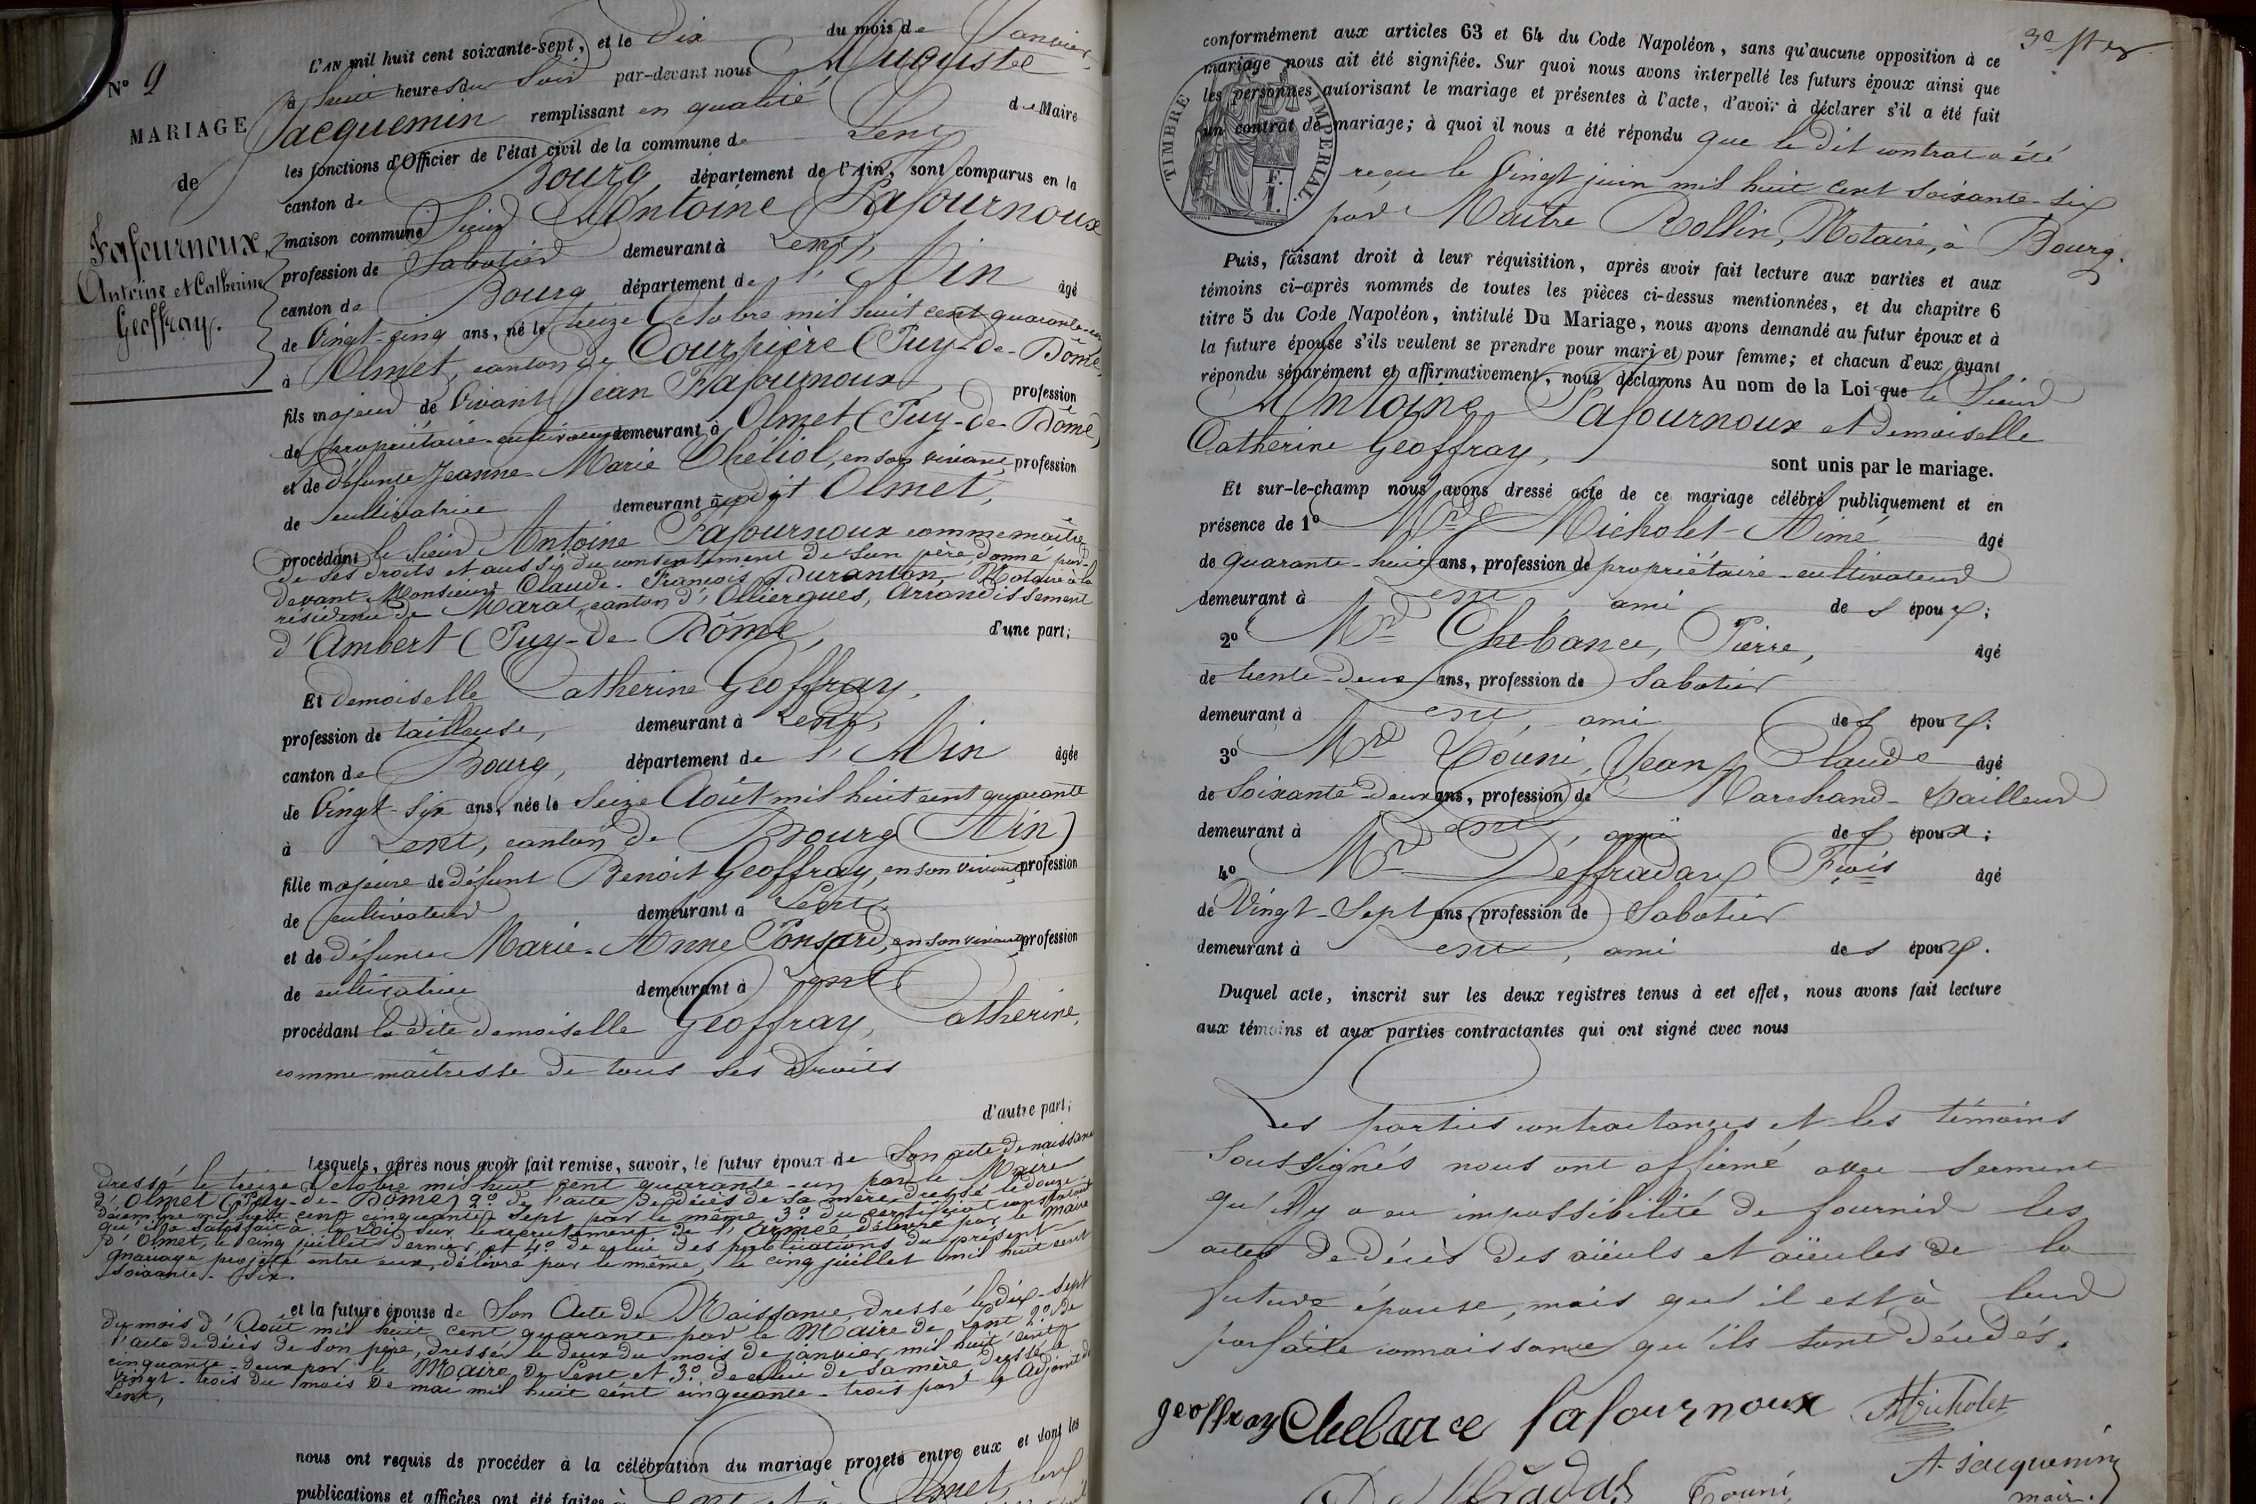 N° 2
MARIAGE
de
Fafournoux,
Antoine et Catherine
Geoffray.
L'AN mil huit cent soixante-sept, et le dix du mois de Janvier,
à huit heures du Soir par-devant nous Auguste
Jacquemin remplissant en qualité de Maire
les fonctions d'Officier de l'état civil de la commune de Lent
canton de Bourg département de l'Ain, sont comparus en la
maison commune Sieur Antoine Fafournoux
profession de Sabotier demeurant à Lent,
canton de Bourg département de l'Ain âgé
de Vingt-cinq ans, né le treize Octobre mil huit cent quarante-un
à Olmet, canton de Courpière (Puy-de-Dôme,
fils majeur de Vivant Jean Fafournoux, profession
de propriétaire-cultivateur demeurant à Olmet (Puy-de-Dôme)
et de défunte Jeanne-Marie Chéliol, en son vivant, profession
de cultivatrice demeurant audit Olmet,
procédant le Sieur Antoine Fafournoux comme maître
de ses droits et aussi du consentement de son père, donné par-
devant Monsieur Claude-François Duranton, Notaire à la
résidence de Marat, canton d'Olliergues, Arrondissement
d'Ambert (Puy-de-Dôme, d'une part;
Et demoiselle Catherine Geoffray,
profession de tailleuse, demeurant à Lent,
canton de Bourg, département de l'Ain âgée
de Vingt-six ans, née le Seize Août mil huit cent quarante
à Lent, canton de Bourg (Ain)
fille majeure de défunt Benoit Geoffray, en son vivant profession
de cultivateur demeurant à Lent,
et de défunte Marie-Anne Ponsard, en son vivant profession
de cultivatrice demeurant à Lent
procédant la dite demoiselle Geoffray, Catherine,
comme maîtresse de tous ses droits
d'autre part;
Lesquels, après nous avoir fait remise, savoir, le futur époux de Son acte de naissance
dressé le treize Octobre mil huit cent quarante-un par le Maire
d'Olmet (Puy-de-Dôme) 2° de l'acte de décès de sa mère dressé le douze
décembre mil huit cent cinquante-sept par le même 3° du certificat constatant
qu'il a satisfait à la loi sur le recrutement de l'armée délivré par le Maire
d'Olmet, le cinq juillet dernier et 4° de celui des publications du présent
mariage projeté entre eux, délivré par le même, le cinq juillet mil huit cent
soixante-six.
et la future épouse de Son Acte de Naissance, dressé le dix-sept
du mois d'Août mil huit cent quarante par le Maire de Lent 2° de
l'acte de décès de son père, dressé le deux du mois de janvier mil huit cent
cinquante-deux par le Maire de Lent et 3° de celui de sa mère dressé le
vingt-trois du mois de mai mil huit cent cinquante-trois par l'Adjoint de
Lent,
nous ont requis de procéder à la célébration du mariage projeté entre eux et dont les
publications et affiches ont été faites à Lent et à Olmet,
conformément aux articles 63 et 64 du Code Napoléon, sans qu'aucune opposition à ce
mariage nous ait été signifiée. Sur quoi nous avons interpellé les futurs époux ainsi que
les personnes autorisant le mariage et présentes à l'acte, d'avoir à déclarer s'il a été fait
un contrat de mariage; à quoi il nous a été répondu que le dit contrat a été
TIMBRE IMPÉRIAL.
reçu le Vingt juin mil huit cent soixante-six
par Maître Rollin, Notaire, à Bourg.
Puis, faisant droit à leur réquisition, après avoir fait lecture aux parties et aux
témoins ci-après nommés de toutes les pièces ci-dessus mentionnées, et du chapitre 6
titre 5 du Code Napoléon, intitulé Du Mariage, nous avons demandé au futur époux et à
la future épouse s'ils veulent se prendre pour mari et pour femme; et chacun d'eux ayant
répondu séparément et affirmativement, nous déclarons Au nom de la Loi que le Sieur
Antoine Fafournoux et Demoiselle
Catherine Geoffray, sont unis par le mariage.
Et sur-le-champ nous avons dressé acte de ce mariage célébré publiquement et en
présence de 1° Mr Micholet-Aimé âgé
de quarante-huit ans, profession de propriétaire-cultivateur
demeurant à Lent, ami des époux;
2° Mr Chebance, Pierre, âgé
de trente-deux ans, profession de Sabotier
demeurant à Lent, ami des époux;
3° Mr Touni, Jean Claude âgé
de Soixante-deux ans, profession de Marchand-Tailleur
demeurant à Lent, ami des époux;
4° Mr Deffradas Fçois âgé
de Vingt-Sept ans, profession de Sabotier
demeurant à Lent, ami des époux.
Duquel acte, inscrit sur les deux registres tenus à cet effet, nous avons fait lecture
aux témoins et aux parties contractantes qui ont signé avec nous
Les parties contractantes et les témoins
Soussignés nous ont affirmé avec serment
qu'il y a eu impossibilité de fournir les
actes de décès des aïeuls et aïeules de la
future épouse, mais qu'il est à leur
parfaite connaissance qu'ils sont décédés.
geoffray Chebance fafournoux AMicholet
Deffradas Touni A. Jacquemin
maire.